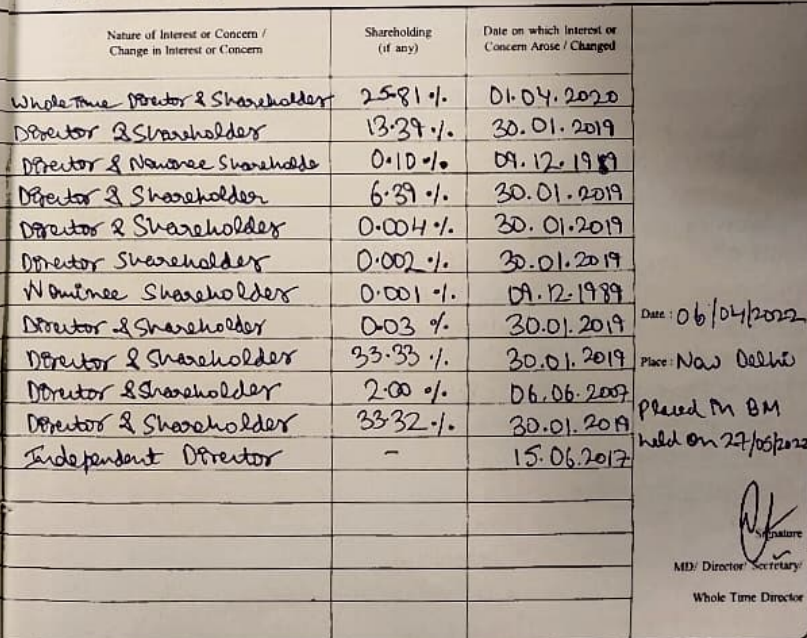 Nature of Interest or Concern / Change in Interest or Concern | Shareholding (if any) | Date on which Interest or Concern Arose / Changed
Whole Time Director & Shareholder 25.81 % 01.04.2020
Director & Shareholder 13.39 % 30.01.2019
Director & Nominee Shareholde 0.10 % 09.12.1989
Director & Shareholder 6.39 % 30.01.2019
Director & Shareholder 0.004 % 30.01.2019
Director Shareholder 0.002 % 30.01.2019
Nominee Shareholder 0.001 % 09.12.1989
Director & Shareholder 0.03 % 30.01.2019
Director & Shareholder 33.33 % 30.01.2019
Director & Shareholder 2.00 % 06.06.2007
Director & Shareholder 33.32 % 30.01.2019
Independent Director - 15.06.2017
Date : 06/04/2022
Place : New Delhi
Placed in BM
held on 27/05/2022
Signature
MD/ Director/ Secretary/
Whole Time Director